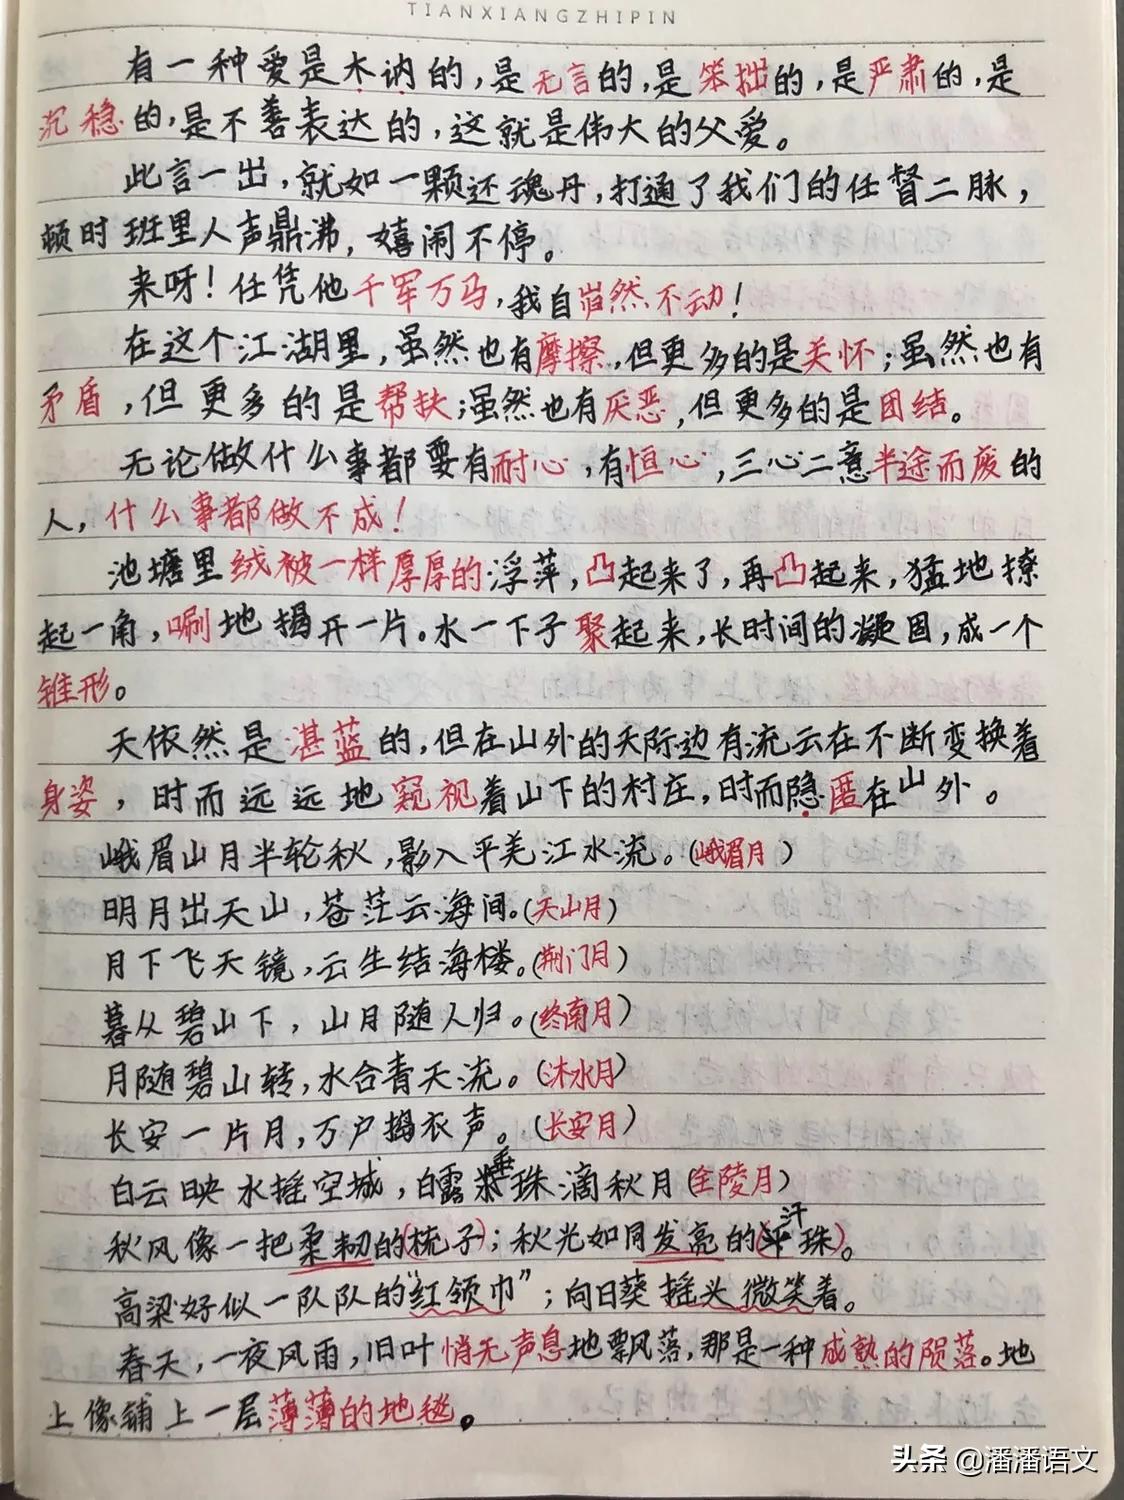 TIANXIANGZHIPIN
有一种爱是木讷的,是无言的,是笨拙的,是严肃的,是
沉稳的,是不善表达的,这就是伟大的父爱。
此言一出,就如一颗还魂丹,打通了我们的任督二脉,
顿时班里人声鼎沸,嬉闹不停。
来呀!任凭他千军万马,我自岿然不动!
在这个江湖里,虽然也有摩擦,但更多的是关怀;虽然也有
矛盾,但更多的是帮扶;虽然也有厌恶,但更多的是团结。
无论做什么事都要有耐心,有恒心,三心二意半途而废的
人,什么事都做不成!
池塘里绒被一样厚厚的浮萍,凸起来了,再凸起来,猛地撩
起一角,唰地揭开一片。水一下子聚起来,长时间的凝固,成一个
锥形。
天依然是湛蓝的,但在山外的天际边有流云在不断变换着
身姿,时而远远地窥视着山下的村庄,时而隐匿在山外。
峨眉山月半轮秋,影入平羌江水流。(峨眉月)
明月出天山,苍茫云海间。(天山月)
月下飞天镜,云生结海楼。(荆门月)
暮从碧山下,山月随人归。(终南月)
月随碧山转,水合青天流。(沐水月)
长安一片月,万户捣衣声。(长安月)
白云映水摇空城,白露垂珠滴秋月(金陵月)
秋风像一把柔韧的(梳子);秋光如同发亮的(汗珠)。
高梁好似一队队的“红领巾”;向日葵摇头微笑着。
春天,一夜风雨,旧叶悄无声息地飘落,那是一种成熟的陨落。地
上像铺上一层薄薄的地毯。
头条 @潘潘语文